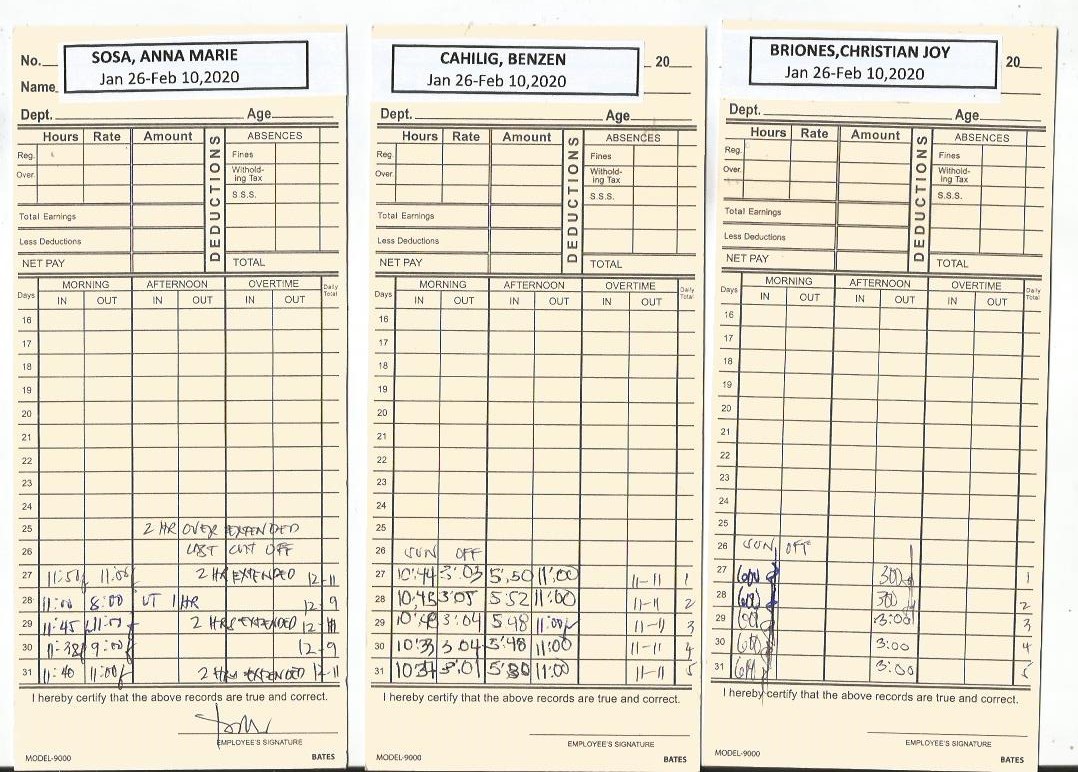 No. SOSA, ANNA MARIE
Jan 26-Feb 10,2020
Name
Dept. Age
Hours Rate Amount DEDUCTIONS ABSENCES
Reg. Fines
Over. Withold-ing Tax
S.S.S.
Total Earnings
Less Deductions
NET PAY TOTAL
Days MORNING AFTERNOON OVERTIME Daily Total
IN OUT IN OUT IN OUT
16
17
18
19
20
21
22
23
24
25 2 HR OVER EXTENDED
26 LAST CUT OFF
27 2 HR EXTENDED 12-11
28 11:00 8:00 UT 1 HR 12-9
29 11:45 2 HRS EXTENDED
30 11:38 9:00 12-9
31 11:40 11:00 2 HRS EXTENDED 12-11
I hereby certify that the above records are true and correct.
EMPLOYEE'S SIGNATURE
MODEL-9000 BATES
CAHILIG, BENZEN 20
Jan 26-Feb 10,2020
Dept. Age
Hours Rate Amount DEDUCTIONS ABSENCES
Reg. Fines
Over. Withold-ing Tax
S.S.S.
Total Earnings
Less Deductions
NET PAY TOTAL
Days MORNING AFTERNOON OVERTIME Daily Total
IN OUT IN OUT IN OUT
16
17
18
19
20
21
22
23
24
25
26 SUN OFF
27 10:44 3:03 5:50 11:00 11-11 1
28 10:45 3:05 5:52 11:00 11-11 2
29 3:04 5:48 11:00 11-11 3
30 10:33 3:04 5:48 11:00 11-11 4
31 10:37 3:01 11:00 11-11 5
I hereby certify that the above records are true and correct.
EMPLOYEE'S SIGNATURE
MODEL-9000 BATES
BRIONES,CHRISTIAN JOY 20
Jan 26-Feb 10,2020
Dept. Age
Hours Rate Amount DEDUCTIONS ABSENCES
Reg. Fines
Over. Withold-ing Tax
S.S.S.
Total Earnings
Less Deductions
NET PAY TOTAL
Days MORNING AFTERNOON OVERTIME Daily Total
IN OUT IN OUT IN OUT
16
17
18
19
20
21
22
23
24
25
26 SUN OFF
27 300 1
28 300 2
29 3:00 3
30 3:00 4
31 3:00 5
I hereby certify that the above records are true and correct.
EMPLOYEE'S SIGNATURE
MODEL-9000 BATES